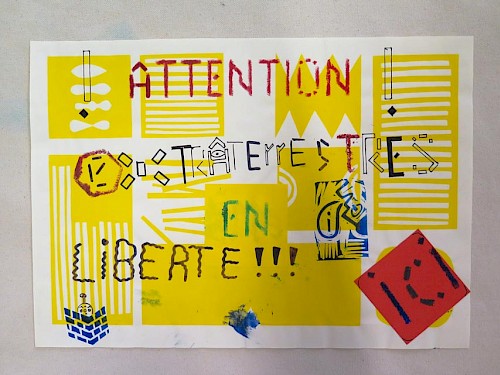 ! ATTENTION !
EXTRATERRESTRES
EN
LiBERTE!!!
ici